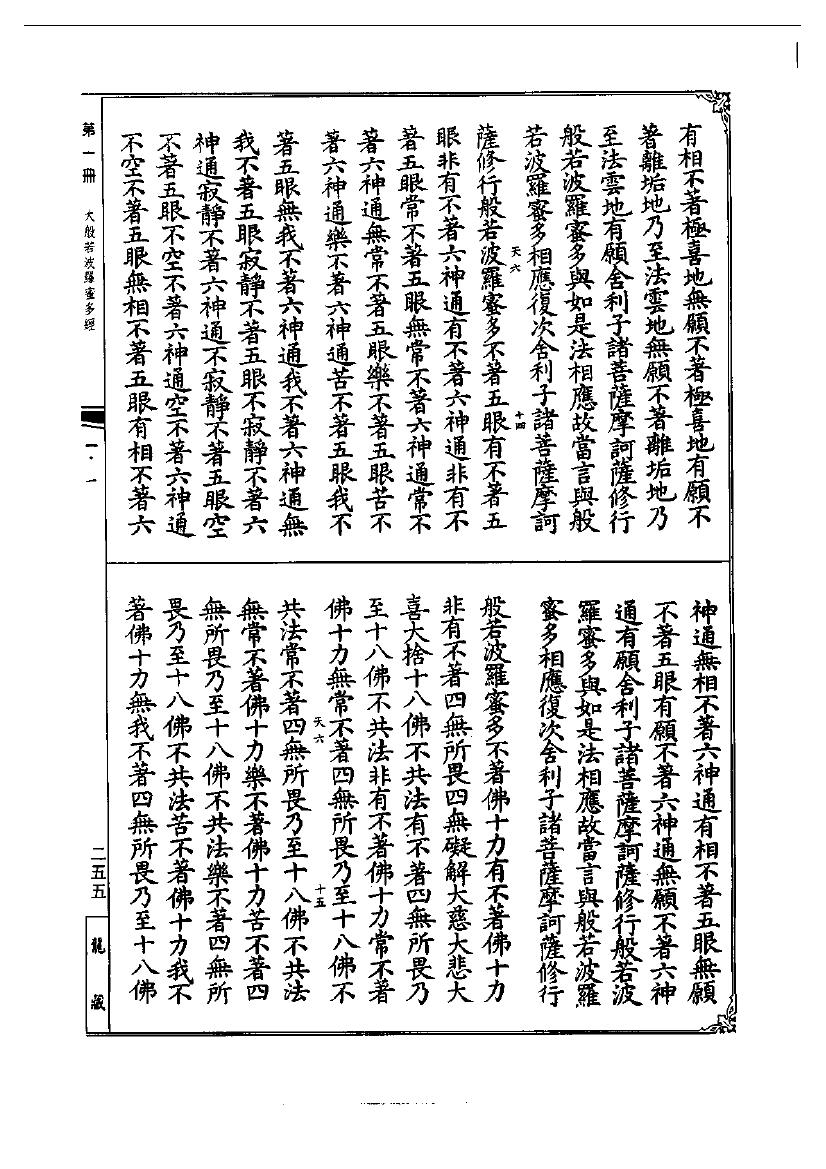 有相不著極喜地無願不著極喜地有願不
著離垢地乃至法雲地無願不著離垢地乃
至法雲地有願舍利子諸菩薩摩訶薩修行
般若波羅蜜多與如是法相應故當言與般
若波羅蜜多相應復次舍利子諸菩薩摩訶
天六
十四
薩修行般若波羅蜜多不著五眼有不著五
眼非有不著六神通有不著六神通非有不
著五眼常不著五眼無常不著六神通常不
著六神通無常不著五眼樂不著五眼苦不
著六神通樂不著六神通苦不著五眼我不
著五眼無我不著六神通我不著六神通無
我不著五眼寂靜不著五眼不寂靜不著六
神通寂靜不著六神通不寂靜不著五眼空
不著五眼不空不著六神通空不著六神通
不空不著五眼無相不著五眼有相不著六
神通無相不著六神通有相不著五眼無願
不著五眼有願不著六神通無願不著六神
通有願舍利子諸菩薩摩訶薩修行般若波
羅蜜多與如是法相應故當言與般若波羅
蜜多相應復次舍利子諸菩薩摩訶薩修行
般若波羅蜜多不著佛十力有不著佛十力
非有不著四無所畏四無礙解大慈大悲大
喜大捨十八佛不共法有不著四無所畏乃
至十八佛不共法非有不著佛十力常不著
佛十力無常不著四無所畏乃至十八佛不
天六
十五
共法常不著四無所畏乃至十八佛不共法
無常不著佛十力樂不著佛十力苦不著四
無所畏乃至十八佛不共法樂不著四無所
畏乃至十八佛不共法苦不著佛十力我不
著佛十力無我不著四無所畏乃至十八佛
第一冊 大般若波羅蜜多經
一·一
二五五
龍藏